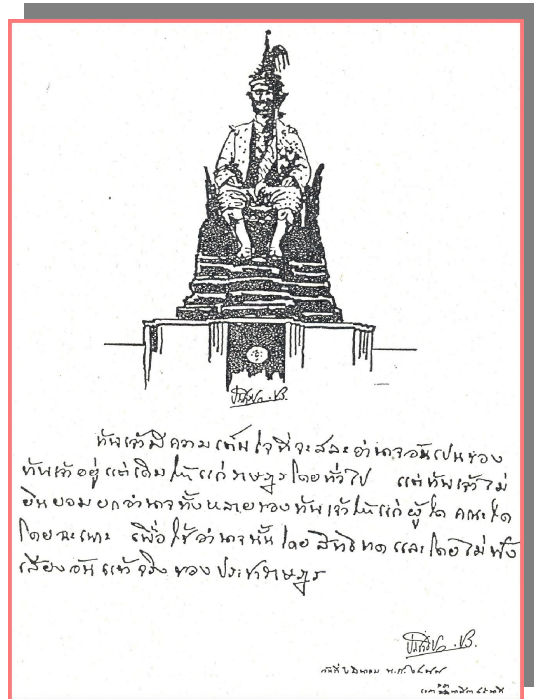 ข้าพเจ้ามีความเต็มใจที่จะสละอำนาจอันเปนของ
ข้าพเจ้าอยู่แต่เดิมให้แก่ราษฎรโดยทั่วไป แต่ข้าพเจ้าไม่
ยินยอมยกอำนาจทั้งหลายของข้าพเจ้าให้แก่ผู้ใด คณะใด
โดยฉะเพาะ เพื่อใช้อำนาจนั้นโดยสิทธิขาด และโดยไม่ฟัง
เสียงอันแท้จริงของประชาราษฎร
วันที่ ๒ มีนาคม พ.ศ. ๒๔๗๗